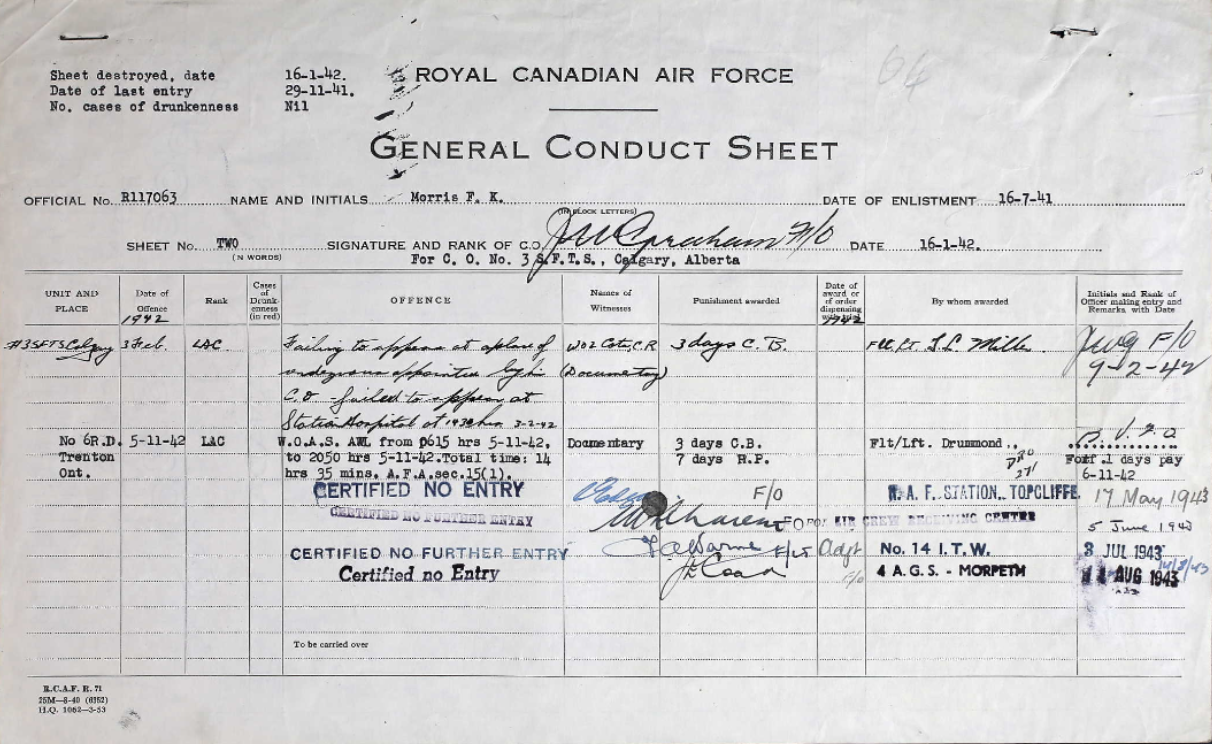 Sheet destroyed, date 16-1-42.
Date of last entry 29-11-41.
No. cases of drunkenness Nil
64
ROYAL CANADIAN AIR FORCE
GENERAL CONDUCT SHEET
OFFICIAL No. R117063 NAME AND INITIALS Morris F. K. DATE OF ENLISTMENT 16-7-41
(IN BLOCK LETTERS)
SHEET No. TWO SIGNATURE AND RANK OF C.O. F/O DATE 16-1-42.
(IN WORDS)
For C. O. No. 3 S.F.T.S., Calgary, Alberta
UNIT AND PLACE Date of Offence 1942 Rank Cases of Drunk-enness (in red) OFFENCE Names of Witnesses Punishment awarded Date of award or of order dispensing with trial 1942 By whom awarded Initials and Rank of Officer making entry and Remarks with Date
#3SFTS Calgary 3 Feb. LAC Failing to appear at a place of WO2 Cote, C.R 3 days C. B. Flt. Lt. L.L. Mills JWG F/O
rendezvous appointed by his (Documentary) 9-2-42
C.O - failed to appear at
Station Hospital at 1930 hrs 3-2-42
No 6R.D. 5-11-42 LAC W.O.A.S. AWL from 0615 hrs 5-11-42, Documentary 3 days C.B. Flt/Lft. Drummond.,
Trenton to 2050 hrs 5-11-42.Total time: 14 7 days R.P. DRO Forf .1 days pay
Ont. hrs 35 mins. A.F.A.sec.15(1). 271 6-11-42
CERTIFIED NO ENTRY F/O R.A.F. STATION, TOPCLIFFE. 17 May 1943
CERTIFIED NO FURTHER ENTRY AIR CREW RECEIVING CENTRE 5 June 1943
CERTIFIED NO FURTHER ENTRY F/LT Adjt No. 14 I.T.W. 3 JUL 1943
Certified no Entry F/O 4 A.G.S. - MORPETH AUG 1943
To be carried over
R.C.A.F. R. 71
25M—8-40 (6352)
H.Q. 1062—3-53